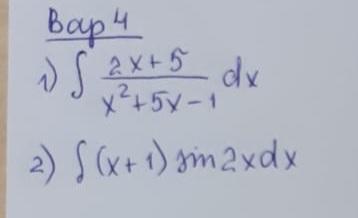 Вар 4
1) ∫ (2x+5)/(x²+5x-1) dx
2) ∫(x+1) sin2xdx